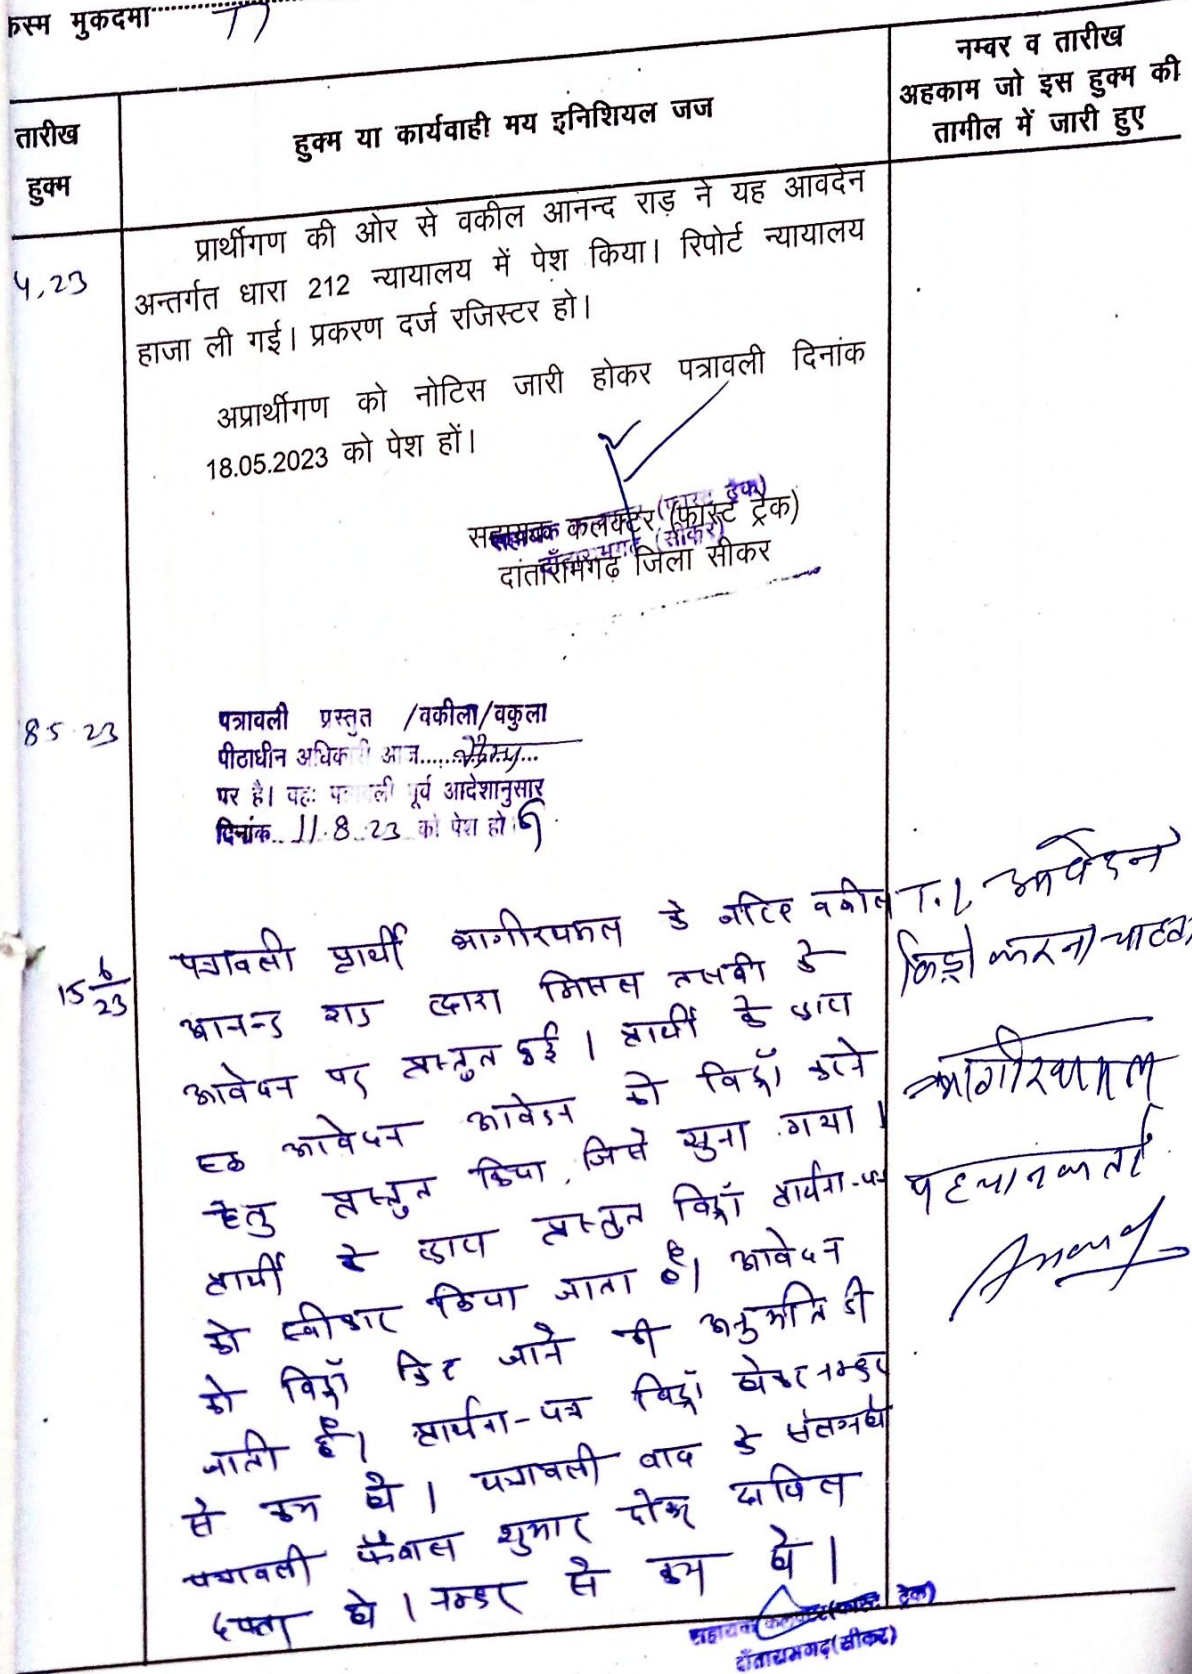 किस्म मुकदमा T I
तारीख हुक्म
हुक्म या कार्यवाही मय इनिशियल जज
नम्वर व तारीख
अहकाम जो इस हुक्म की
तामील में जारी हुए
4,23
प्रार्थीगण की ओर से वकील आनन्द राड़ ने यह आवदेन
अन्तर्गत धारा 212 न्यायालय में पेश किया। रिपोर्ट न्यायालय
हाजा ली गई। प्रकरण दर्ज रजिस्टर हो।
अप्रार्थीगण को नोटिस जारी होकर पत्रावली दिनांक
18.05.2023 को पेश हों।
सहायक कलक्टर (फास्ट ट्रेक)
दांतारामगढ जिला सीकर
8 5 23
पत्रावली प्रस्तुत /वकीला/वकुला
पीठाधीन अधिकारी आज
पर है। पत्रावली पूर्व आदेशानुसार
दिनांक 11.8.23 को पेश हो
15 6/23
पत्रावली प्रार्थी भागीरथमल के जरिए वकील
आनन्द राड द्वारा मिसल तलबी के
आवेदन पर प्रस्तुत हुई। प्रार्थी के द्वारा
एक आवेदन आवेदन को विड्रॉ करने
हेतु प्रस्तुत किया, जिसे सुना गया।
प्रार्थी के द्वारा प्रस्तुत विड्रॉ प्रार्थना-पत्र
को स्वीकार किया जाता है। आवेदन
को विड्रॉ किए जाने की अनुमति दी
जाती है। प्रार्थना-पत्र विड्रॉ होकर नम्बर
से कम हो। पत्रावली वाद के संलग्न हो
पत्रावली फैसल शुमार होकर दाखिल
दफ्तर हो। नम्बर से कम हो।
T.I. आवेदन
विड्रो करना चाहता
भागीरथमल
पहचानकर्ता
Anand
सहायक कलक्टर (फास्ट ट्रेक)
दाँतारामगढ़ (सीकर)